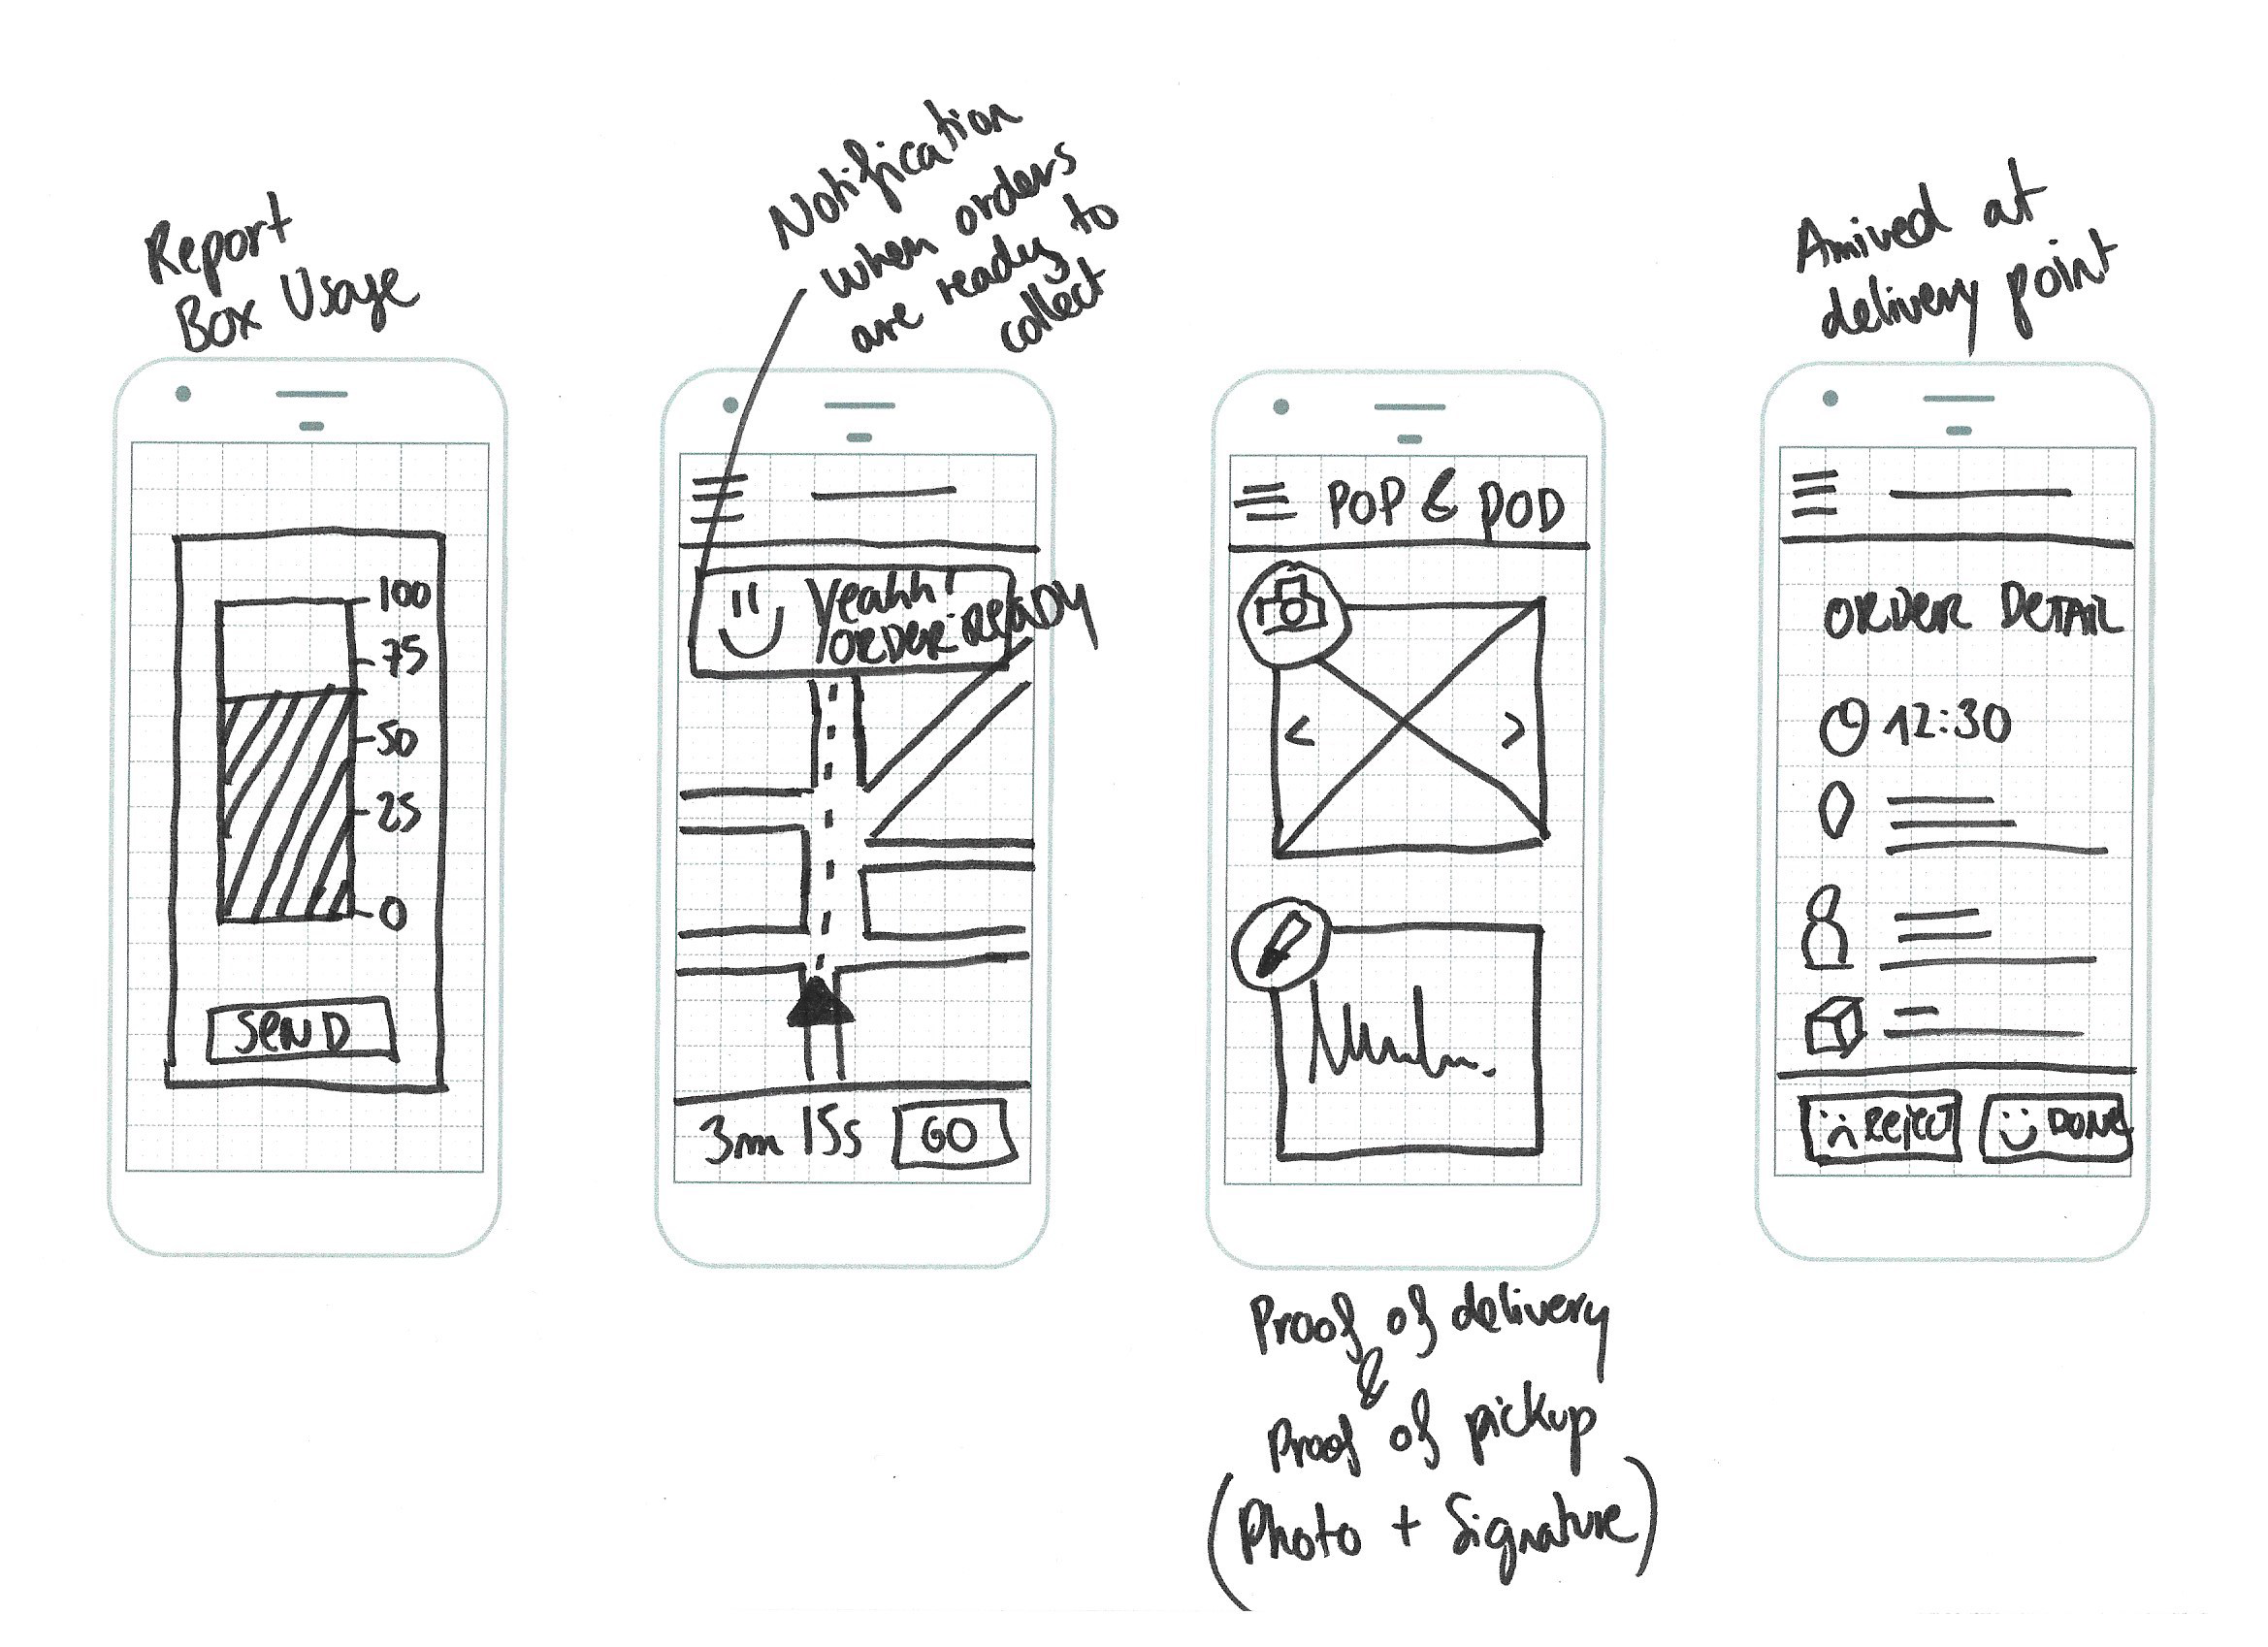 Report
Box Usage
100
75
50
25
0
SEND
Notification
when orders
are ready to
collect
Yeahh!
ORDER READY
3mn 15s
GO
POP & POD
Proof of delivery
&
Proof of pickup
(Photo + Signature)
Arrived at
delivery point
ORDER DETAIL
12:30
REJECT
DONE